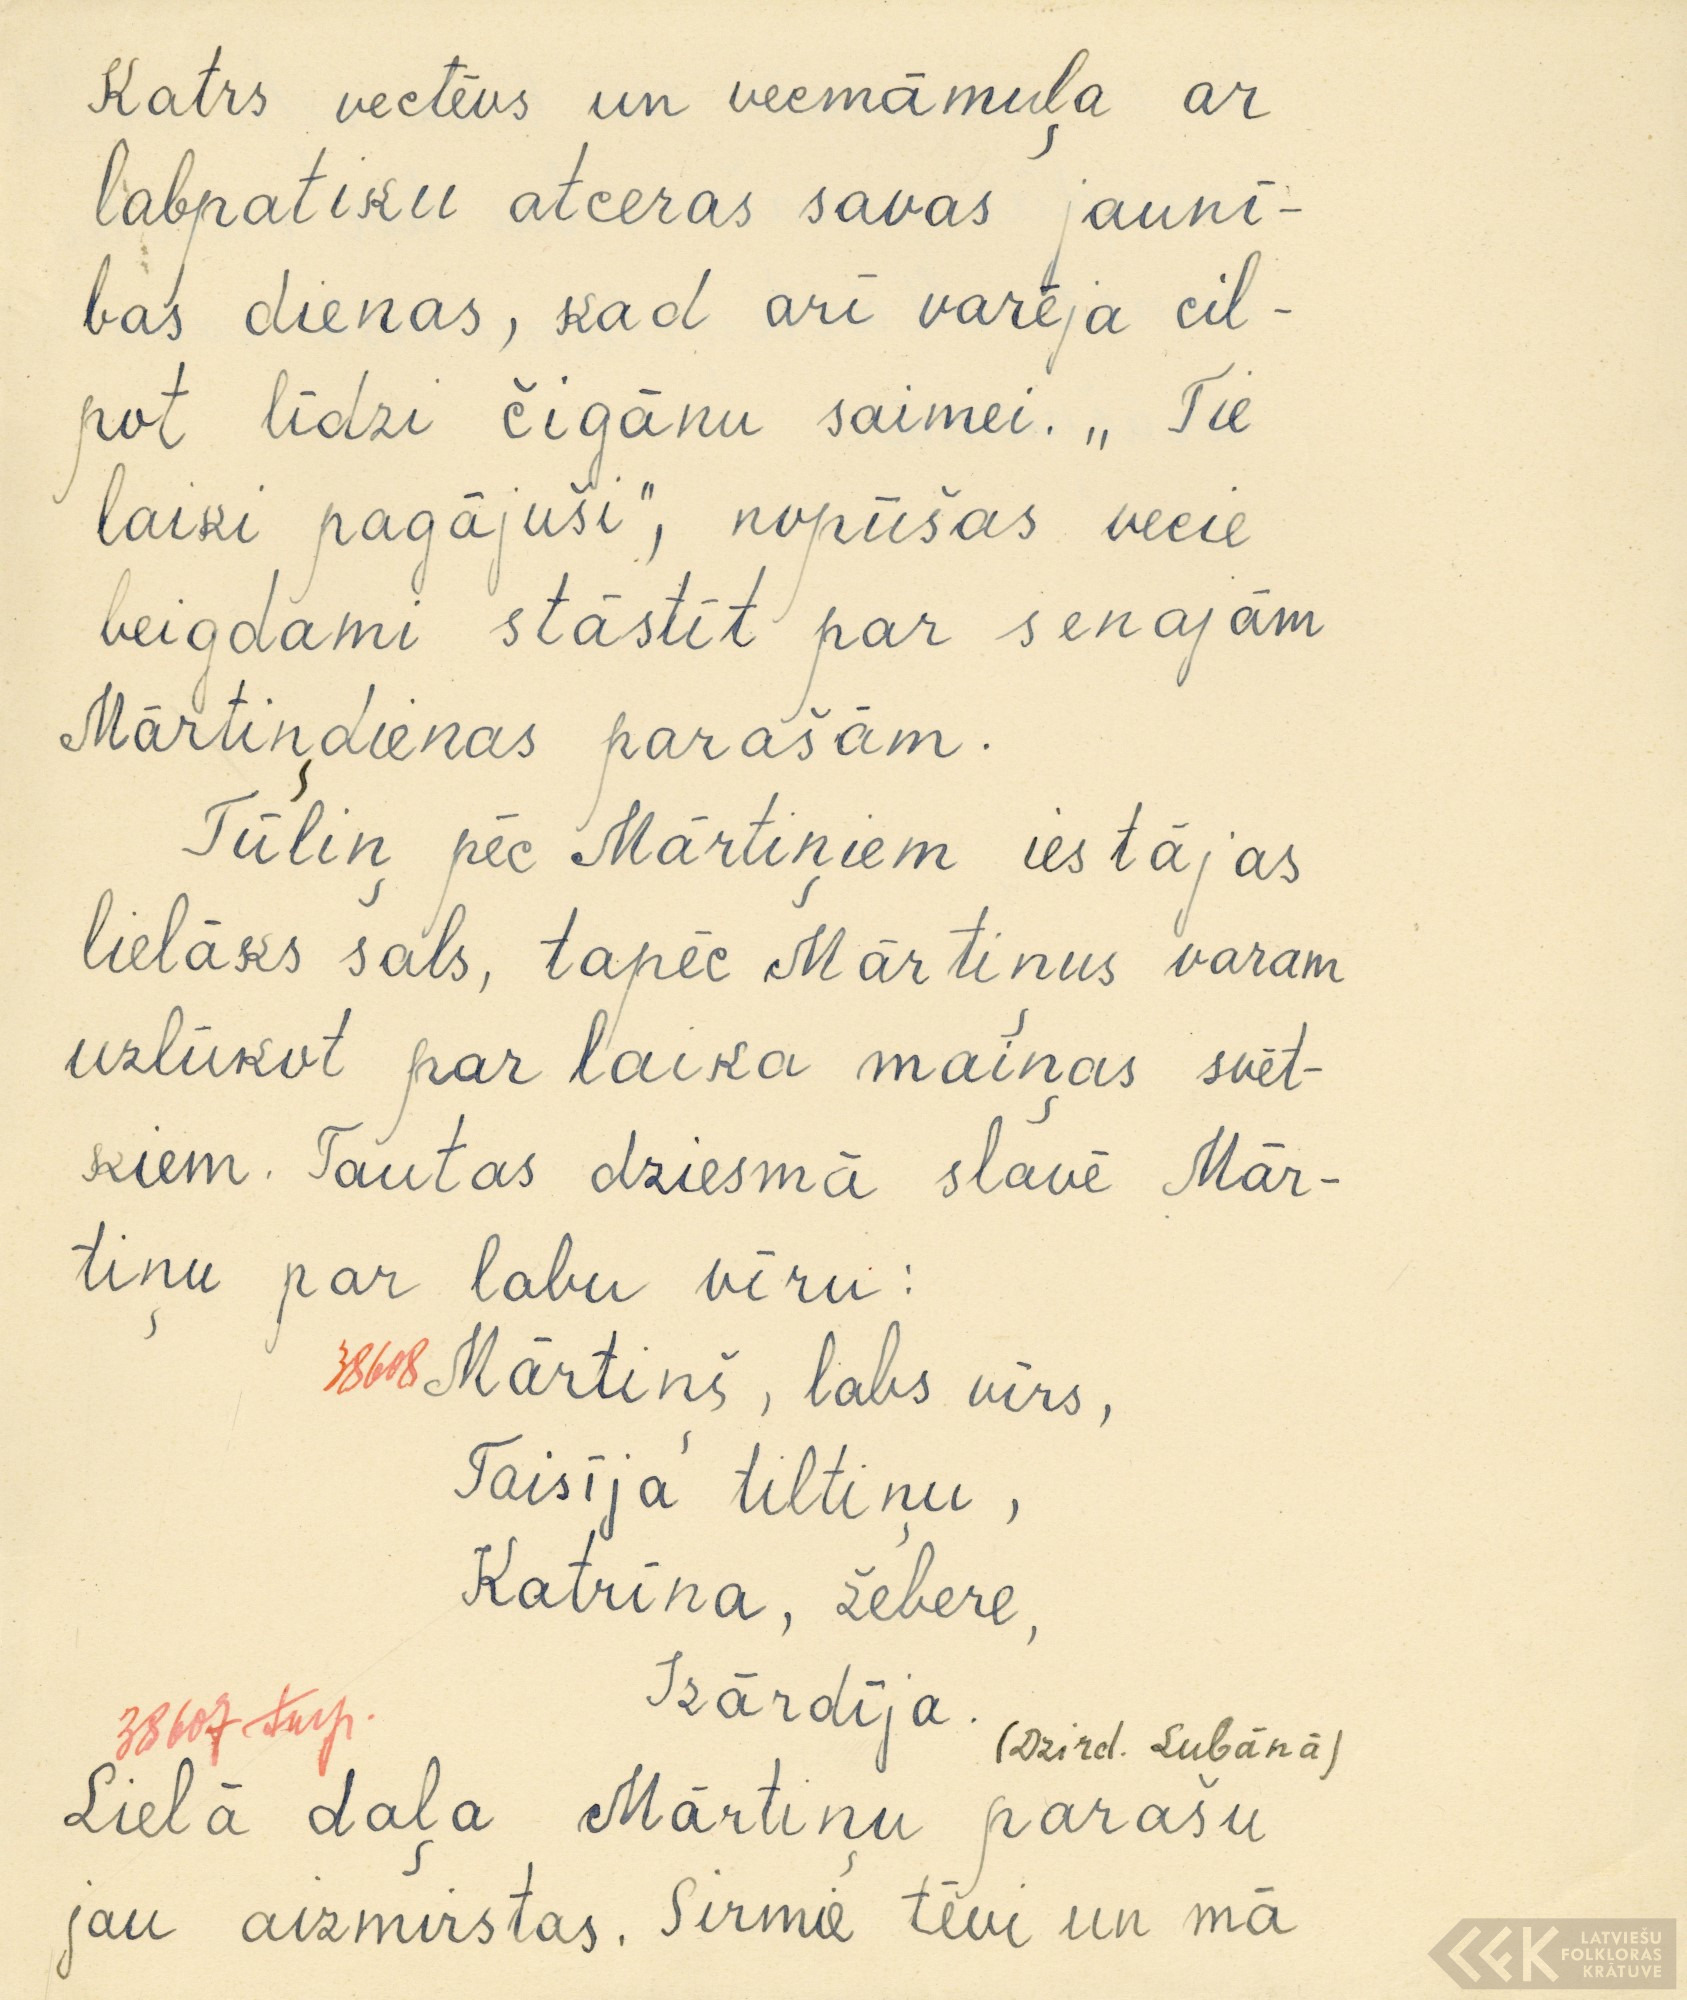 Katrs vectēvs un vecmāmuļa ar
labpatiku atceras savas jaunī-
bas dienas, kad arī varēja cil-
pot līdzi čigānu saimei. „Tie
laiki pagājuši", nopūšas vecie
beigdami stāstīt par senajām
Mārtiņdienas parašām.
Tūliņ pēc Mārtiņiem iestājas
lielāks sals, tapēc Mārtiņus varam
uzlūkot par laika maiņas svēt-
kiem. Tautas dziesmā slavē Mār-
tiņu par labu vīru:
38608 Mārtiņš, labs vīrs,
Taisīja tiltiņu,
Katrīna, žebere,
Izārdīja.
(Dzird. Lubānā)
38607 turp.
Lielā daļa Mārtiņu parašu
jau aizmirstas. Sirmie tēvi un mā
LATVIEŠU
FOLKLORAS
KRĀTUVE